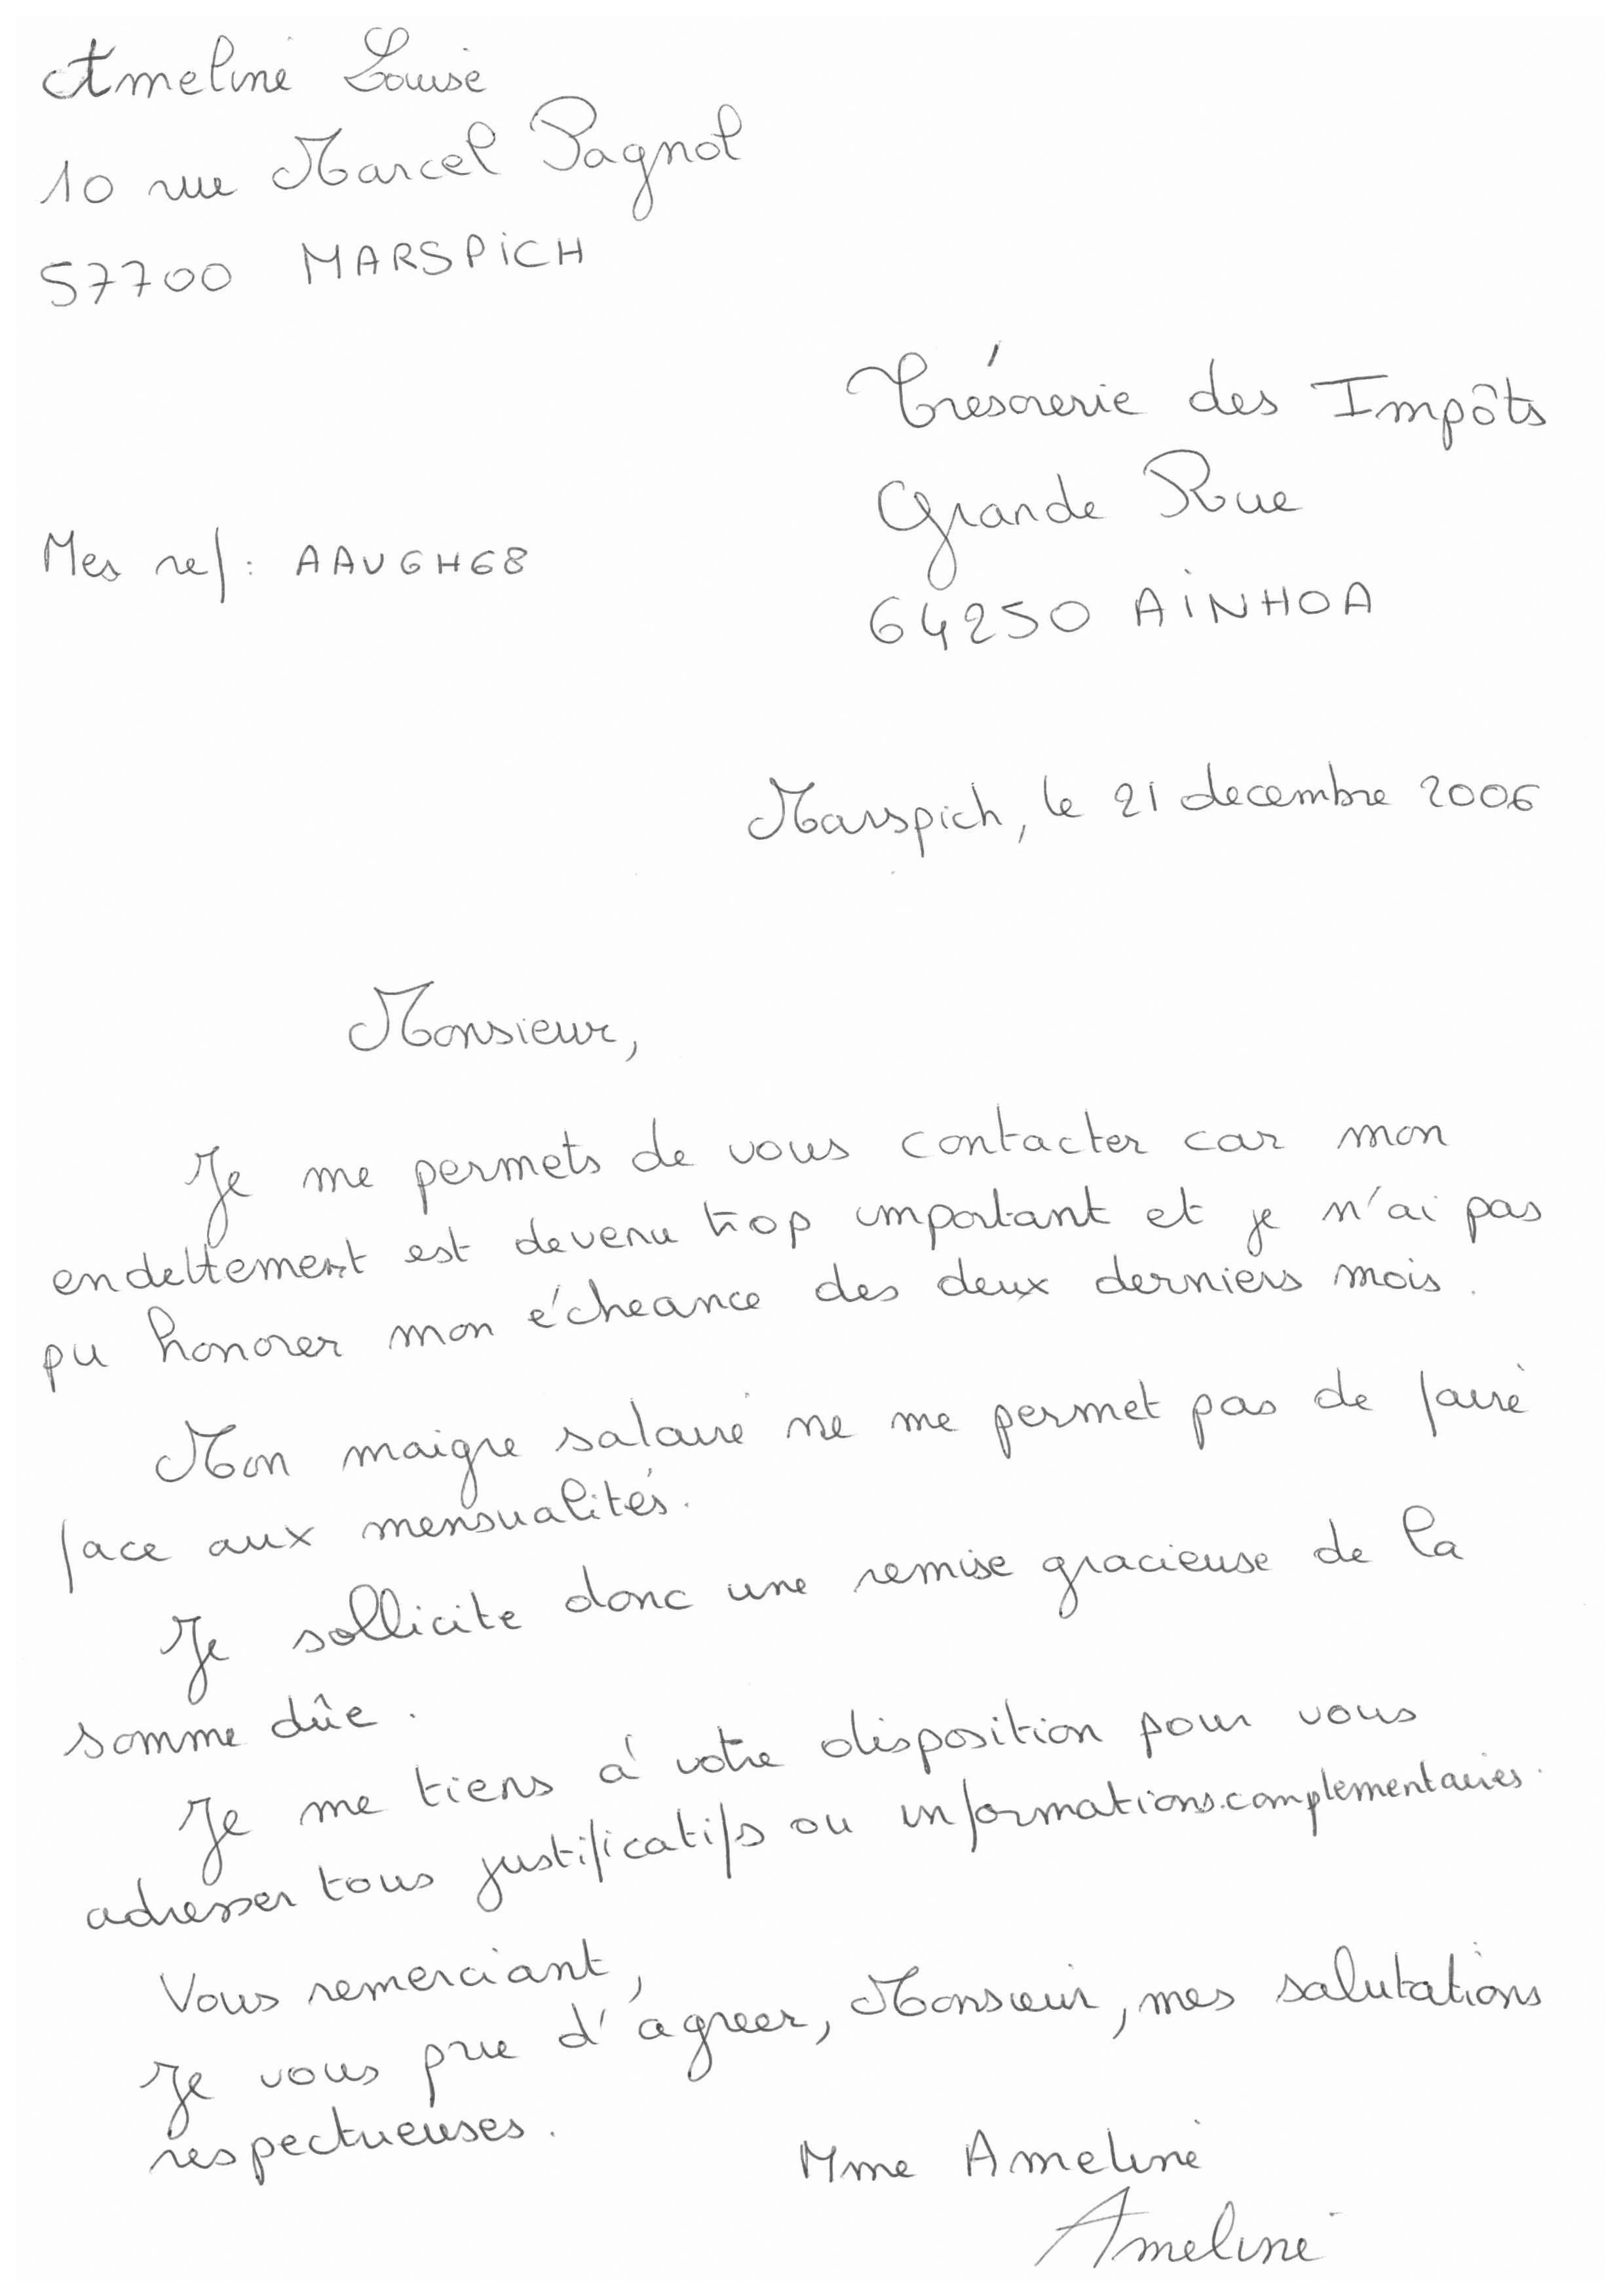 Ameline Louise
10 rue Marcel Pagnol
57700 MARSPICH
Trésorerie des Impôts
Grande Rue
Mes ref : AAVGH68
64250 AINHOA
Marspich, le 21 decembre 2006
Monsieur,
Je me permets de vous contacter car mon
endettement est devenu trop important et je n'ai pas
pu honorer mon écheance des deux derniers mois.
Mon maigre salaire ne me permet pas de faire
face aux mensualités.
Je sollicite donc une remise gracieuse de la
somme dûe.
Je me tiens à votre disposition pour vous
adresser tous justificatifs ou informations complementaires.
Vous remerciant,
Je vous prie d'agreer, Monsieur, mes salutations
respectueuses.
Mme Ameline
Ameline